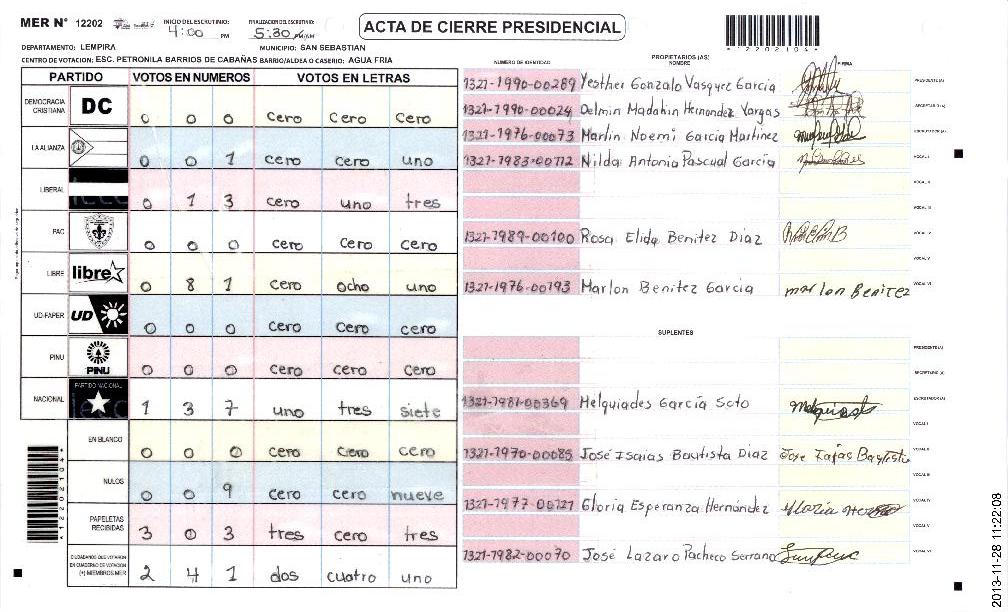 MER N° 12202
INICIO DEL ESCRUTINIO: 4:00 PM
FINALIZACION DEL ESCRUTINIO: 5:30 AM/PM
ACTA DE CIERRE PRESIDENCIAL
*12202104*
DEPARTAMENTO: LEMPIRA
MUNICIPIO: SAN SEBASTIAN
CENTRO DE VOTACION: ESC. PETRONILA BARRIOS DE CABAÑAS BARRIO/ALDEA O CASERIO: AGUA FRIA
PARTIDO VOTOS EN NUMEROS VOTOS EN LETRAS
DEMOCRACIA CRISTIANA DC 0 0 0 cero cero cero
LA ALIANZA 0 0 1 cero cero uno
LIBERAL 0 1 3 cero uno tres
PAC 0 0 0 cero cero cero
LIBRE libre 0 8 1 cero ocho uno
UD-FAPER UD 0 0 0 cero cero cero
PINU PINU 0 0 0 cero cero cero
NACIONAL PARTIDO NACIONAL 1 3 7 uno tres siete
EN BLANCO 0 0 0 cero cero cero
NULOS 0 0 9 cero cero nueve
PAPELETAS RECIBIDAS 3 0 3 tres cero tres
CIUDADANOS QUE VOTARON EN CUADERNO DE VOTACION (+) MIEMBROS MER 2 4 1 dos cuatro uno
NUMERO DE IDENTIDAD
PROPIETARIOS (AS)
NOMBRE
FIRMA
1327-1990-00289 Yesther Gonzalo Vasquez Garcia PRESIDENTE (A)
1327-1990-00024 Delmin Madahin Hernandez Vargas SECRETARIO (A)
1327-1976-00073 Marlin Noemi Garcia Martinez ESCRUTADOR (A)
1327-1983-00112 Nilda Antonia Pascual Garcia VOCAL I
VOCAL II
VOCAL III
1327-1989-00100 Rosa Elida Benitez Diaz VOCAL IV
VOCAL V
1327-1976-00193 Marlon Benitez Garcia marlon Benitez VOCAL VI
SUPLENTES
PRESIDENTE (A)
SECRETARIO (A)
1321-1981-00369 Melquiades García Soto ESCRUTADOR (A)
VOCAL I
1327-1970-00085 José Isaias Bautista Diaz VOCAL II
VOCAL III
1327-1977-00127 Gloria Esperanza Hernández VOCAL IV
VOCAL V
1327-1982-00070 José Lazaro Pacheco Serrano VOCAL VI
*12202104*
2013-11-28 11:22:08